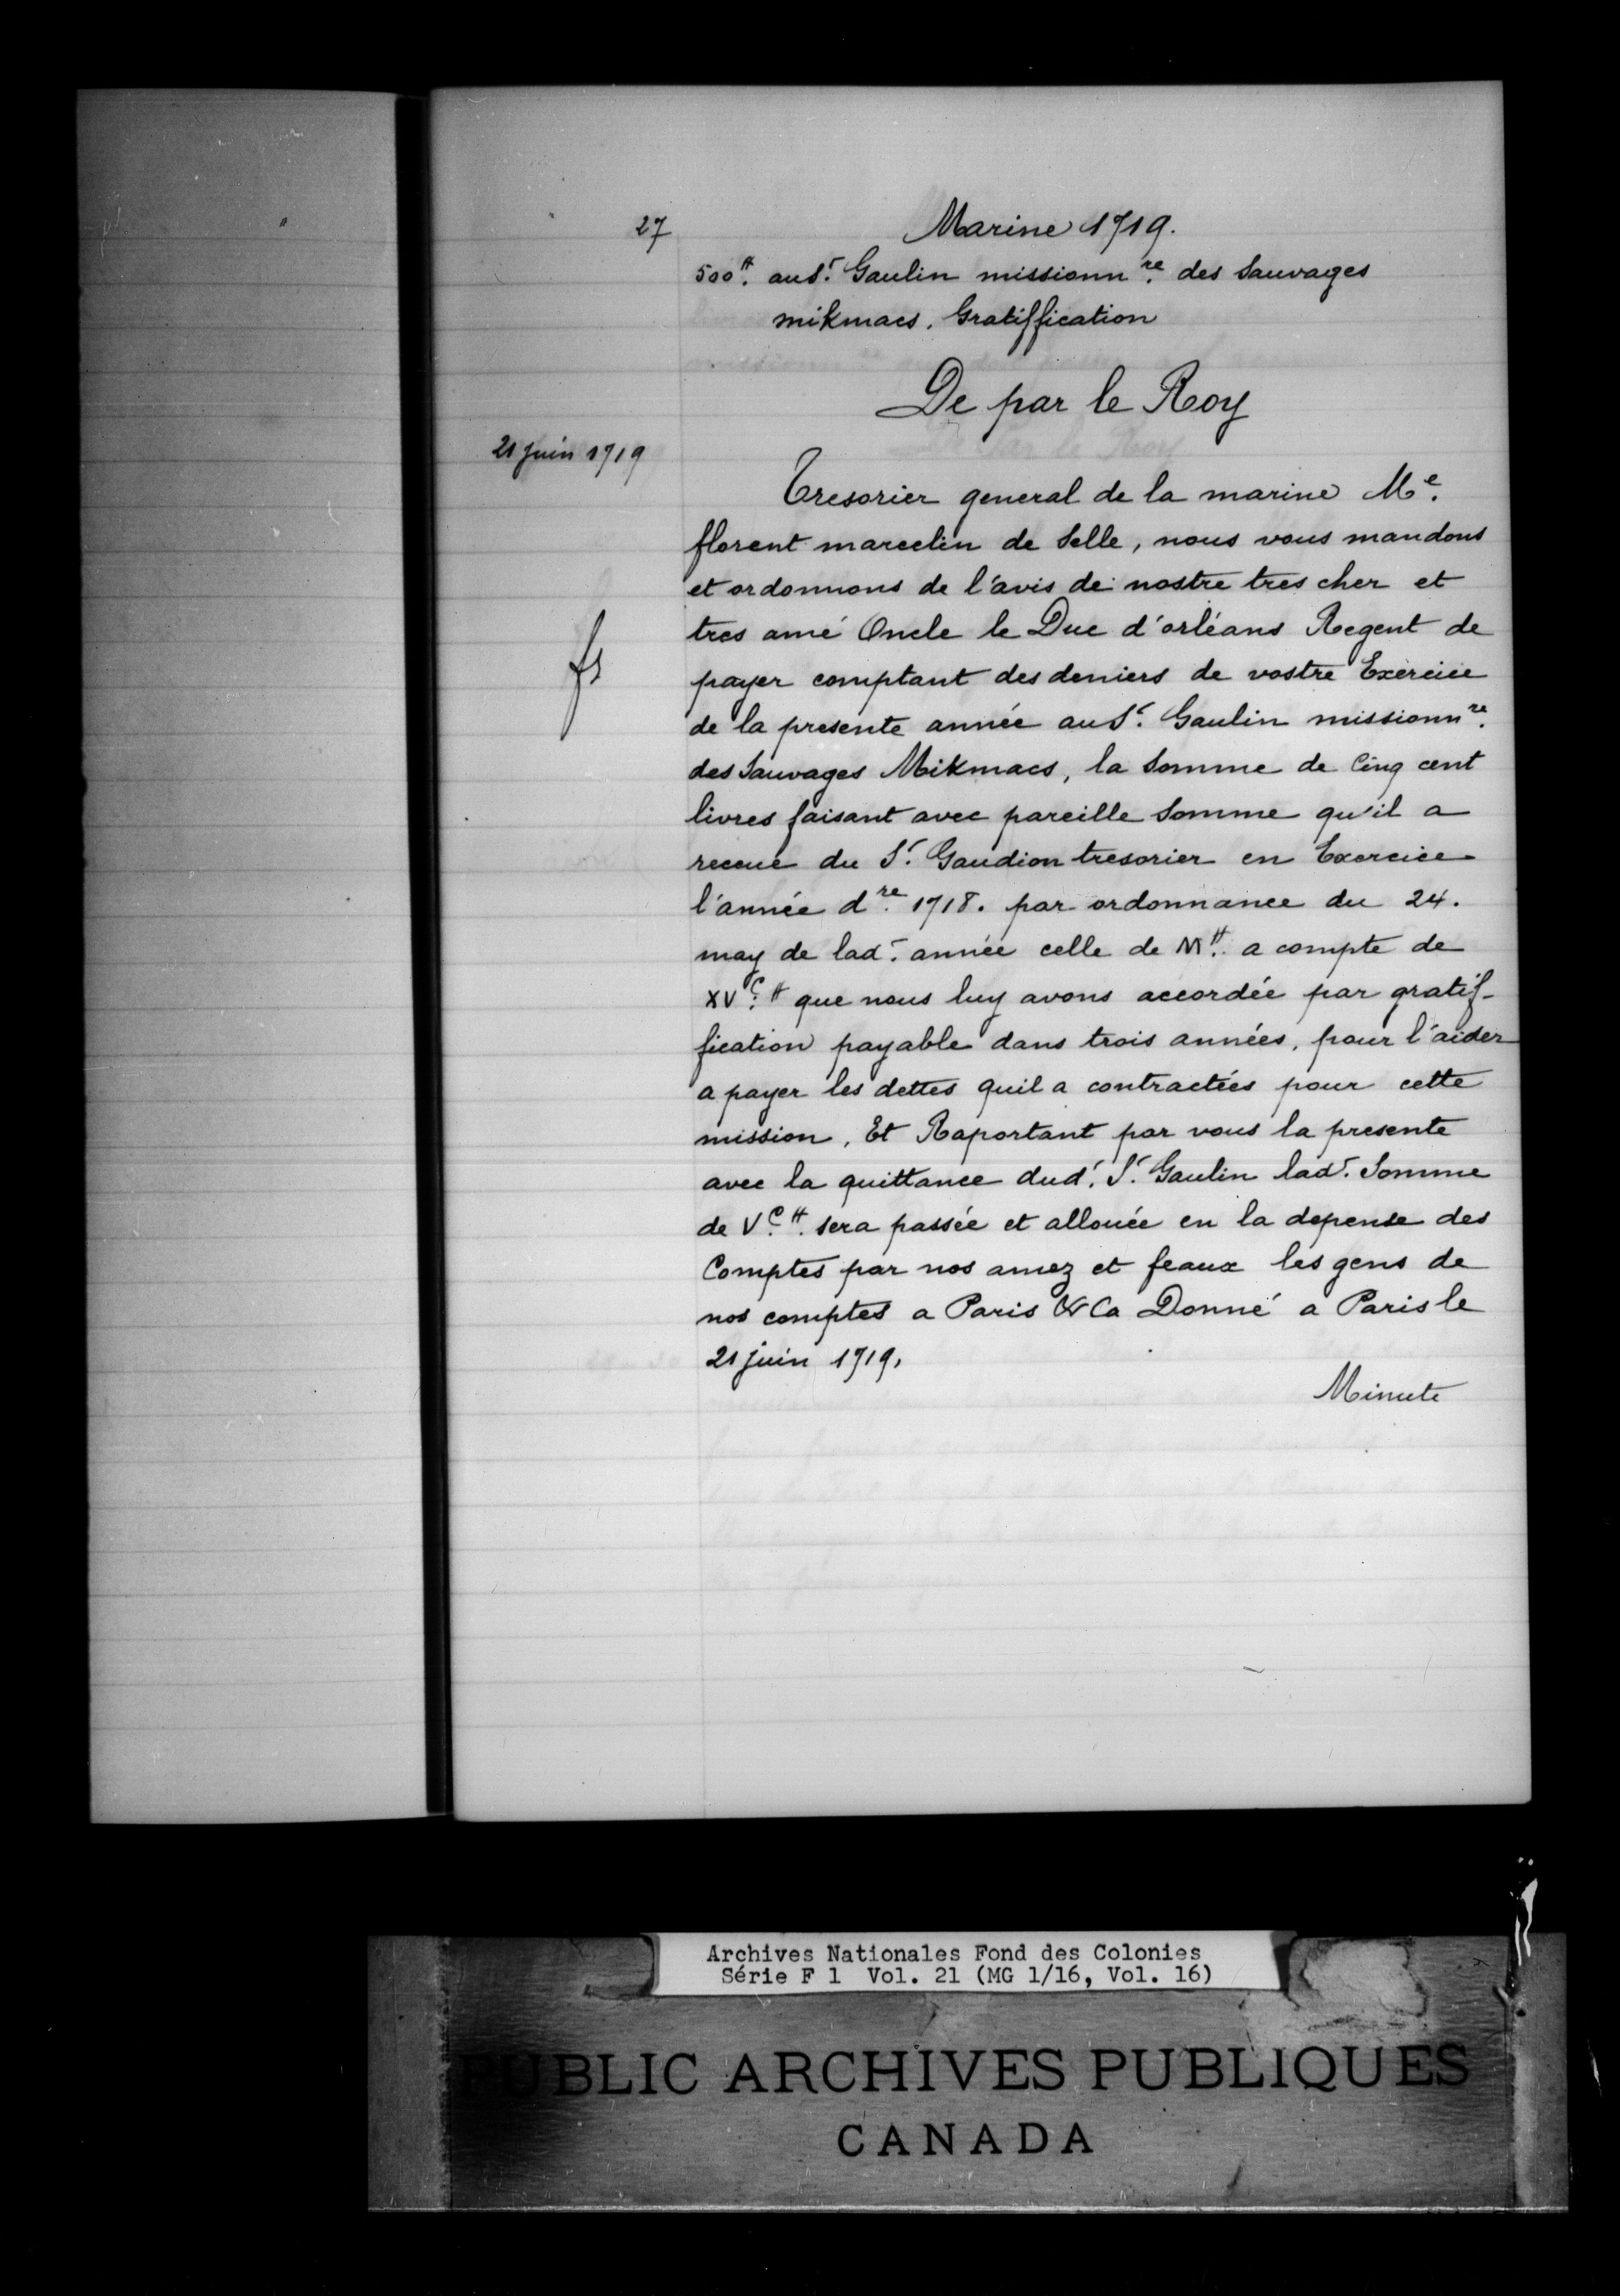 27
Marine 1719.
500# au Sr. Gaulin missionnre. des Sauvages
mikmacs. Gratiffication
De par le Roy
21 juin 1719
Tresorier general de la marine Me.
florent marcelin de Selle, nous vous mandons
et ordonnons de l'avis de nostre tres cher et
tres amé Oncle le Duc d'orléans Regent de
payer comptant des deniers de vostre Exercice
de la presente année au Sr. Gaulin missionnre.
des Sauvages Mikmacs, la Somme de Cinq cent
livres faisant avec pareille Somme qu'il a
receue du Sr. Gaudion tresorier en Exercice
l'année dre. 1718. par ordonnance du 24.
may de lad. année celle de M# a compte de
XVC.# que nous luy avons accordée par gratif-
fication payable dans trois années, pour l'aider
a payer les dettes quil a contractées pour cette
mission, Et Raportant par vous la presente
avec la quittance dud. Sr. Gaulin lad. Somme
de VC.# sera passée et allouée en la depense des
Comptes par nos amez et feaux les gens de
nos comptes a Paris &Ca Donné a Paris le
21 juin 1719,
Minute
Archives Nationales Fond des Colonies
Série F 1 Vol. 21 (MG 1/16, Vol. 16)
PUBLIC ARCHIVES PUBLIQUES
CANADA